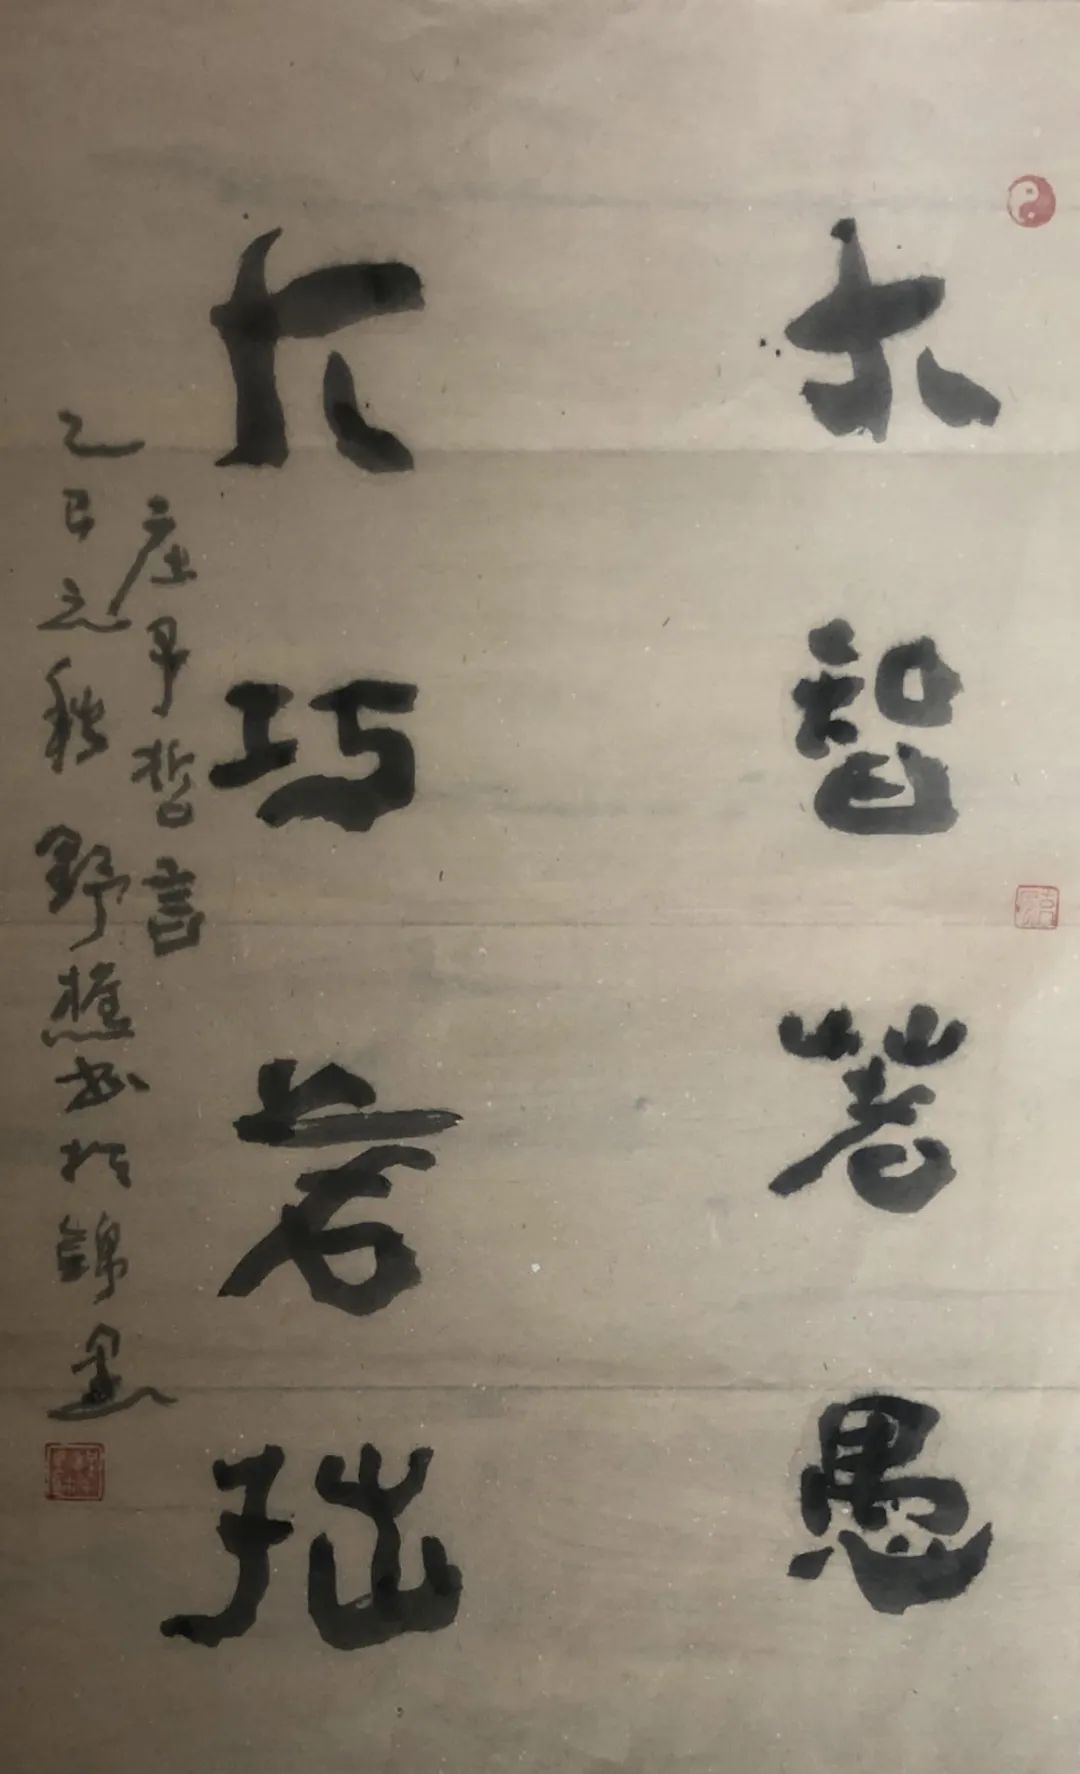 大智若愚
大巧若拙
庄子哲言
乙巳之秋野樵书于锦墨